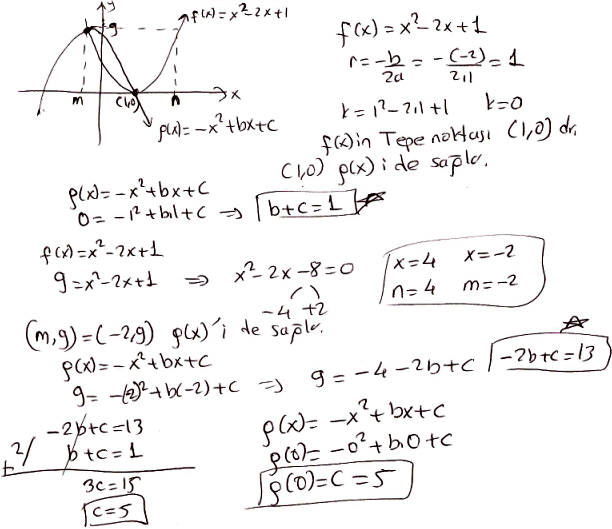 y
9
f(x)=x²-2x+1
m (1,0) n x
p(x)=-x²+bx+c
f(x)=x²-2x+1
r=-b/2a=-(-2)/2.1=1
k=1²-2.1+1 k=0
f(x)in Tepe noktası (1,0) dır.
(1,0) p(x)'i de sağlar.
p(x)=-x²+bx+c
0=-1²+b.1+c ⇒ b+c=1
f(x)=x²-2x+1
9=x²-2x+1 ⇒ x²-2x-8=0
-4 +2
x=4 x=-2
n=4 m=-2
(m,9)=(-2,9) p(x)'i de sağlar.
p(x)=-x²+bx+c
9=-(2)²+b(-2)+c ⇒ 9=-4-2b+c
-2b+c=13
-2b+c=13
2/ b+c=1
3c=15
c=5
p(x)=-x²+bx+c
p(0)=-0²+b.0+c
p(0)=c=5